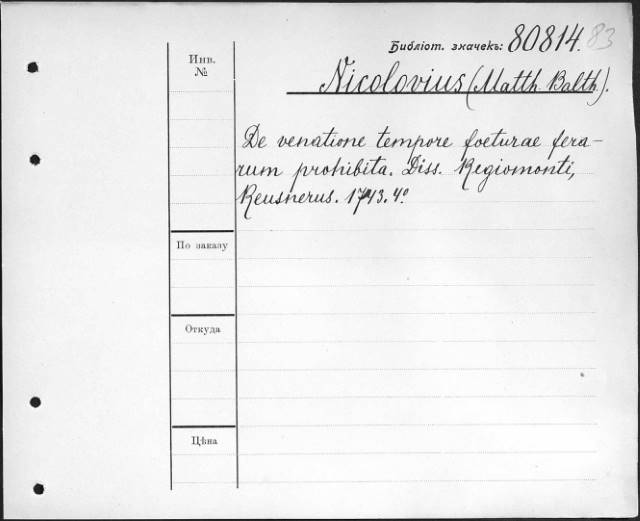 Библіот. значекъ: 80814. 83
Инв.
№
Nicolovius (Matth. Balth.).
De venatione tempore foeturae fera-
rum prohibita. Diss. Regiomonti,
Reusnerus. 1743. 4º
По заказу
Откуда
Цѣна